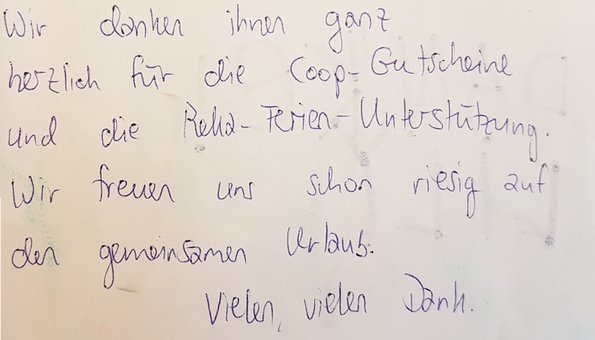 Wir danken ihnen ganz
herzlich für die Coop-Gutscheine
und die Reka-Ferien-Unterstützung.
Wir freuen uns schon riesig auf
den gemeinsamen Urlaub.
Vielen, vielen Dank.